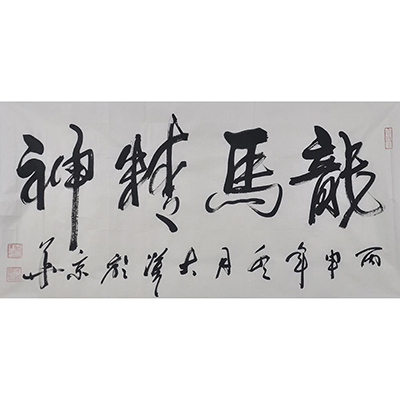 龍馬精神
丙申年冬月大漢於京華